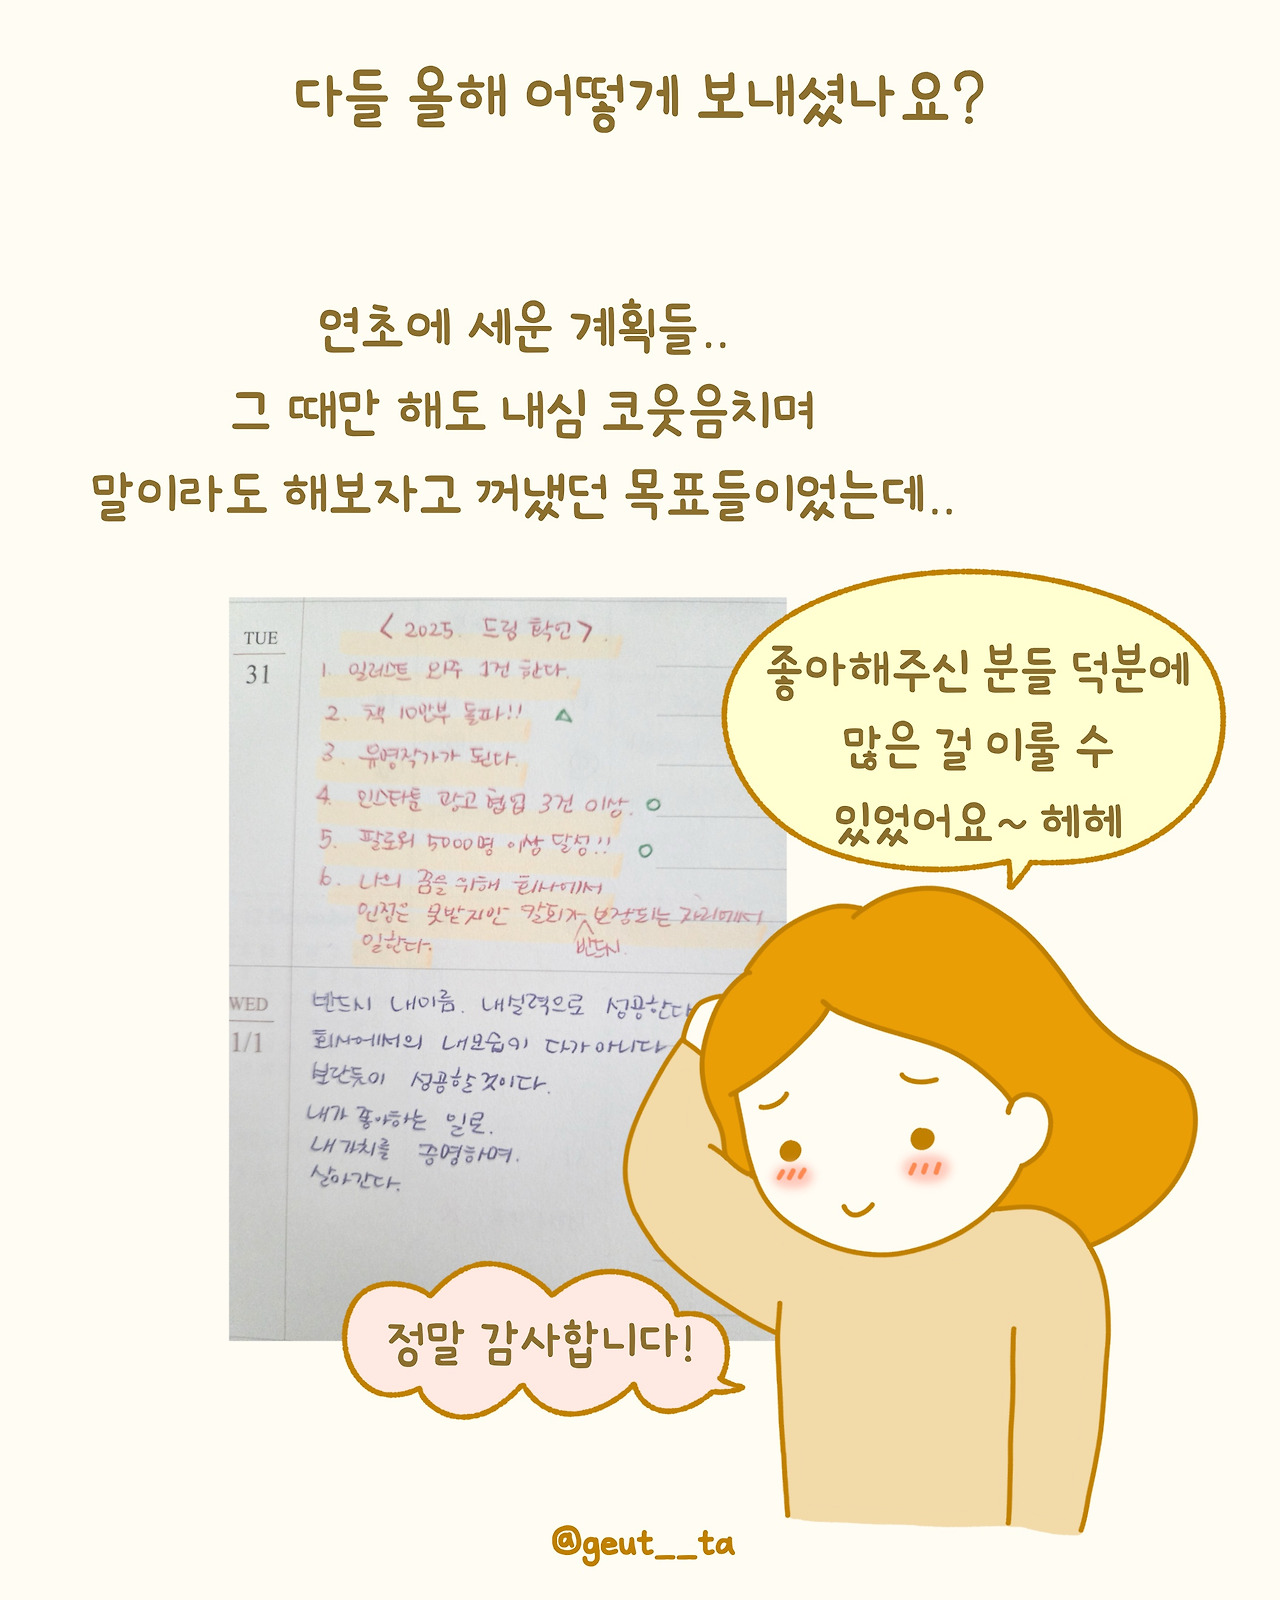 다들 올해 어떻게 보내셨나요?
연초에 세운 계획들..
그 때만 해도 내심 코웃음치며
말이라도 해보자고 꺼냈던 목표들이었는데..
좋아해주신 분들 덕분에
많은 걸 이룰 수
있었어요~ 헤헤
TUE
31
<2025. 드림 확언>.
1. 일러스트 외주 1건 한다.
2. 책 10만부 돌파!! △
3. 유명작가가 된다.
4. 인스타툰 광고 협업 3건 이상. ○
5. 팔로워 5000명 이상 달성!! ○
6. 나의 꿈을 위해 회사에서
인정은 못받지만 칼퇴가 보장되는 자리에서
일한다. 반드시
WED
1/1
반드시 내이름. 내실력으로 성공한다
회사에서의 내모습이 다가 아니다
보란듯이 성공할것이다.
내가 좋아하는 일로.
내가치를 증명하며.
살아간다.
정말 감사합니다!
@geut__ta